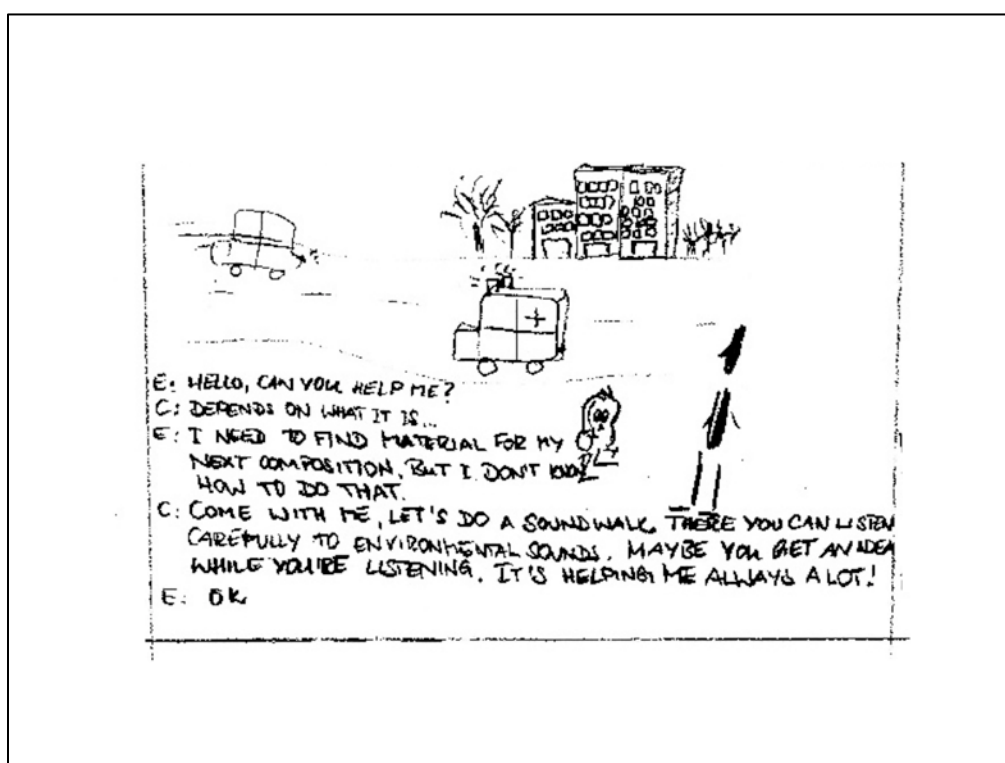 E: HELLO, CAN YOU HELP ME?
C: DEPENDS ON WHAT IT IS...
E: I NEED TO FIND MATERIAL FOR MY
NEXT COMPOSITION, BUT I DON'T KNOW
HOW TO DO THAT.
C: COME WITH ME, LET'S DO A SOUNDWALK. THERE YOU CAN LISTEN
CAREFULLY TO ENVIRONMENTAL SOUNDS. MAYBE YOU GET AN IDEA
WHILE YOU'RE LISTENING. IT'S HELPING ME ALWAYS A LOT!
E: OK